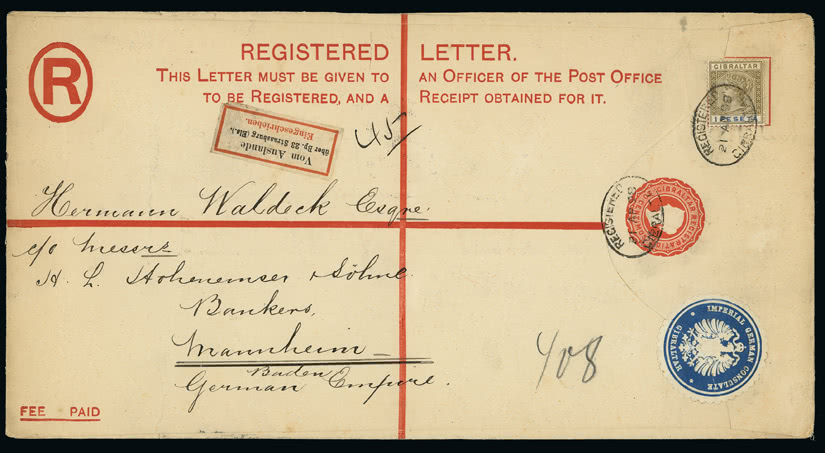 R
REGISTERED LETTER.
THIS LETTER MUST BE GIVEN TO AN OFFICER OF THE POST OFFICE
TO BE REGISTERED, AND A RECEIPT OBTAINED FOR IT.
GIBRALTAR
1 PESETA
REGISTERED
GIBRALTAR
Vom Auslande
über Bp. 23 Strassburg (Els.).
Eingeschrieben.
45
Hermann Waldeck Esqre.
REGISTERED
GIBRALTAR
GIBRALTAR REGISTRATION
c/o Messrs
H. L. Hohenemser & Söhne
Bankers,
Mannheim
Baden
German Empire.
408
IMPERIAL GERMAN CONSULATE
GIBRALTAR
FEE PAID